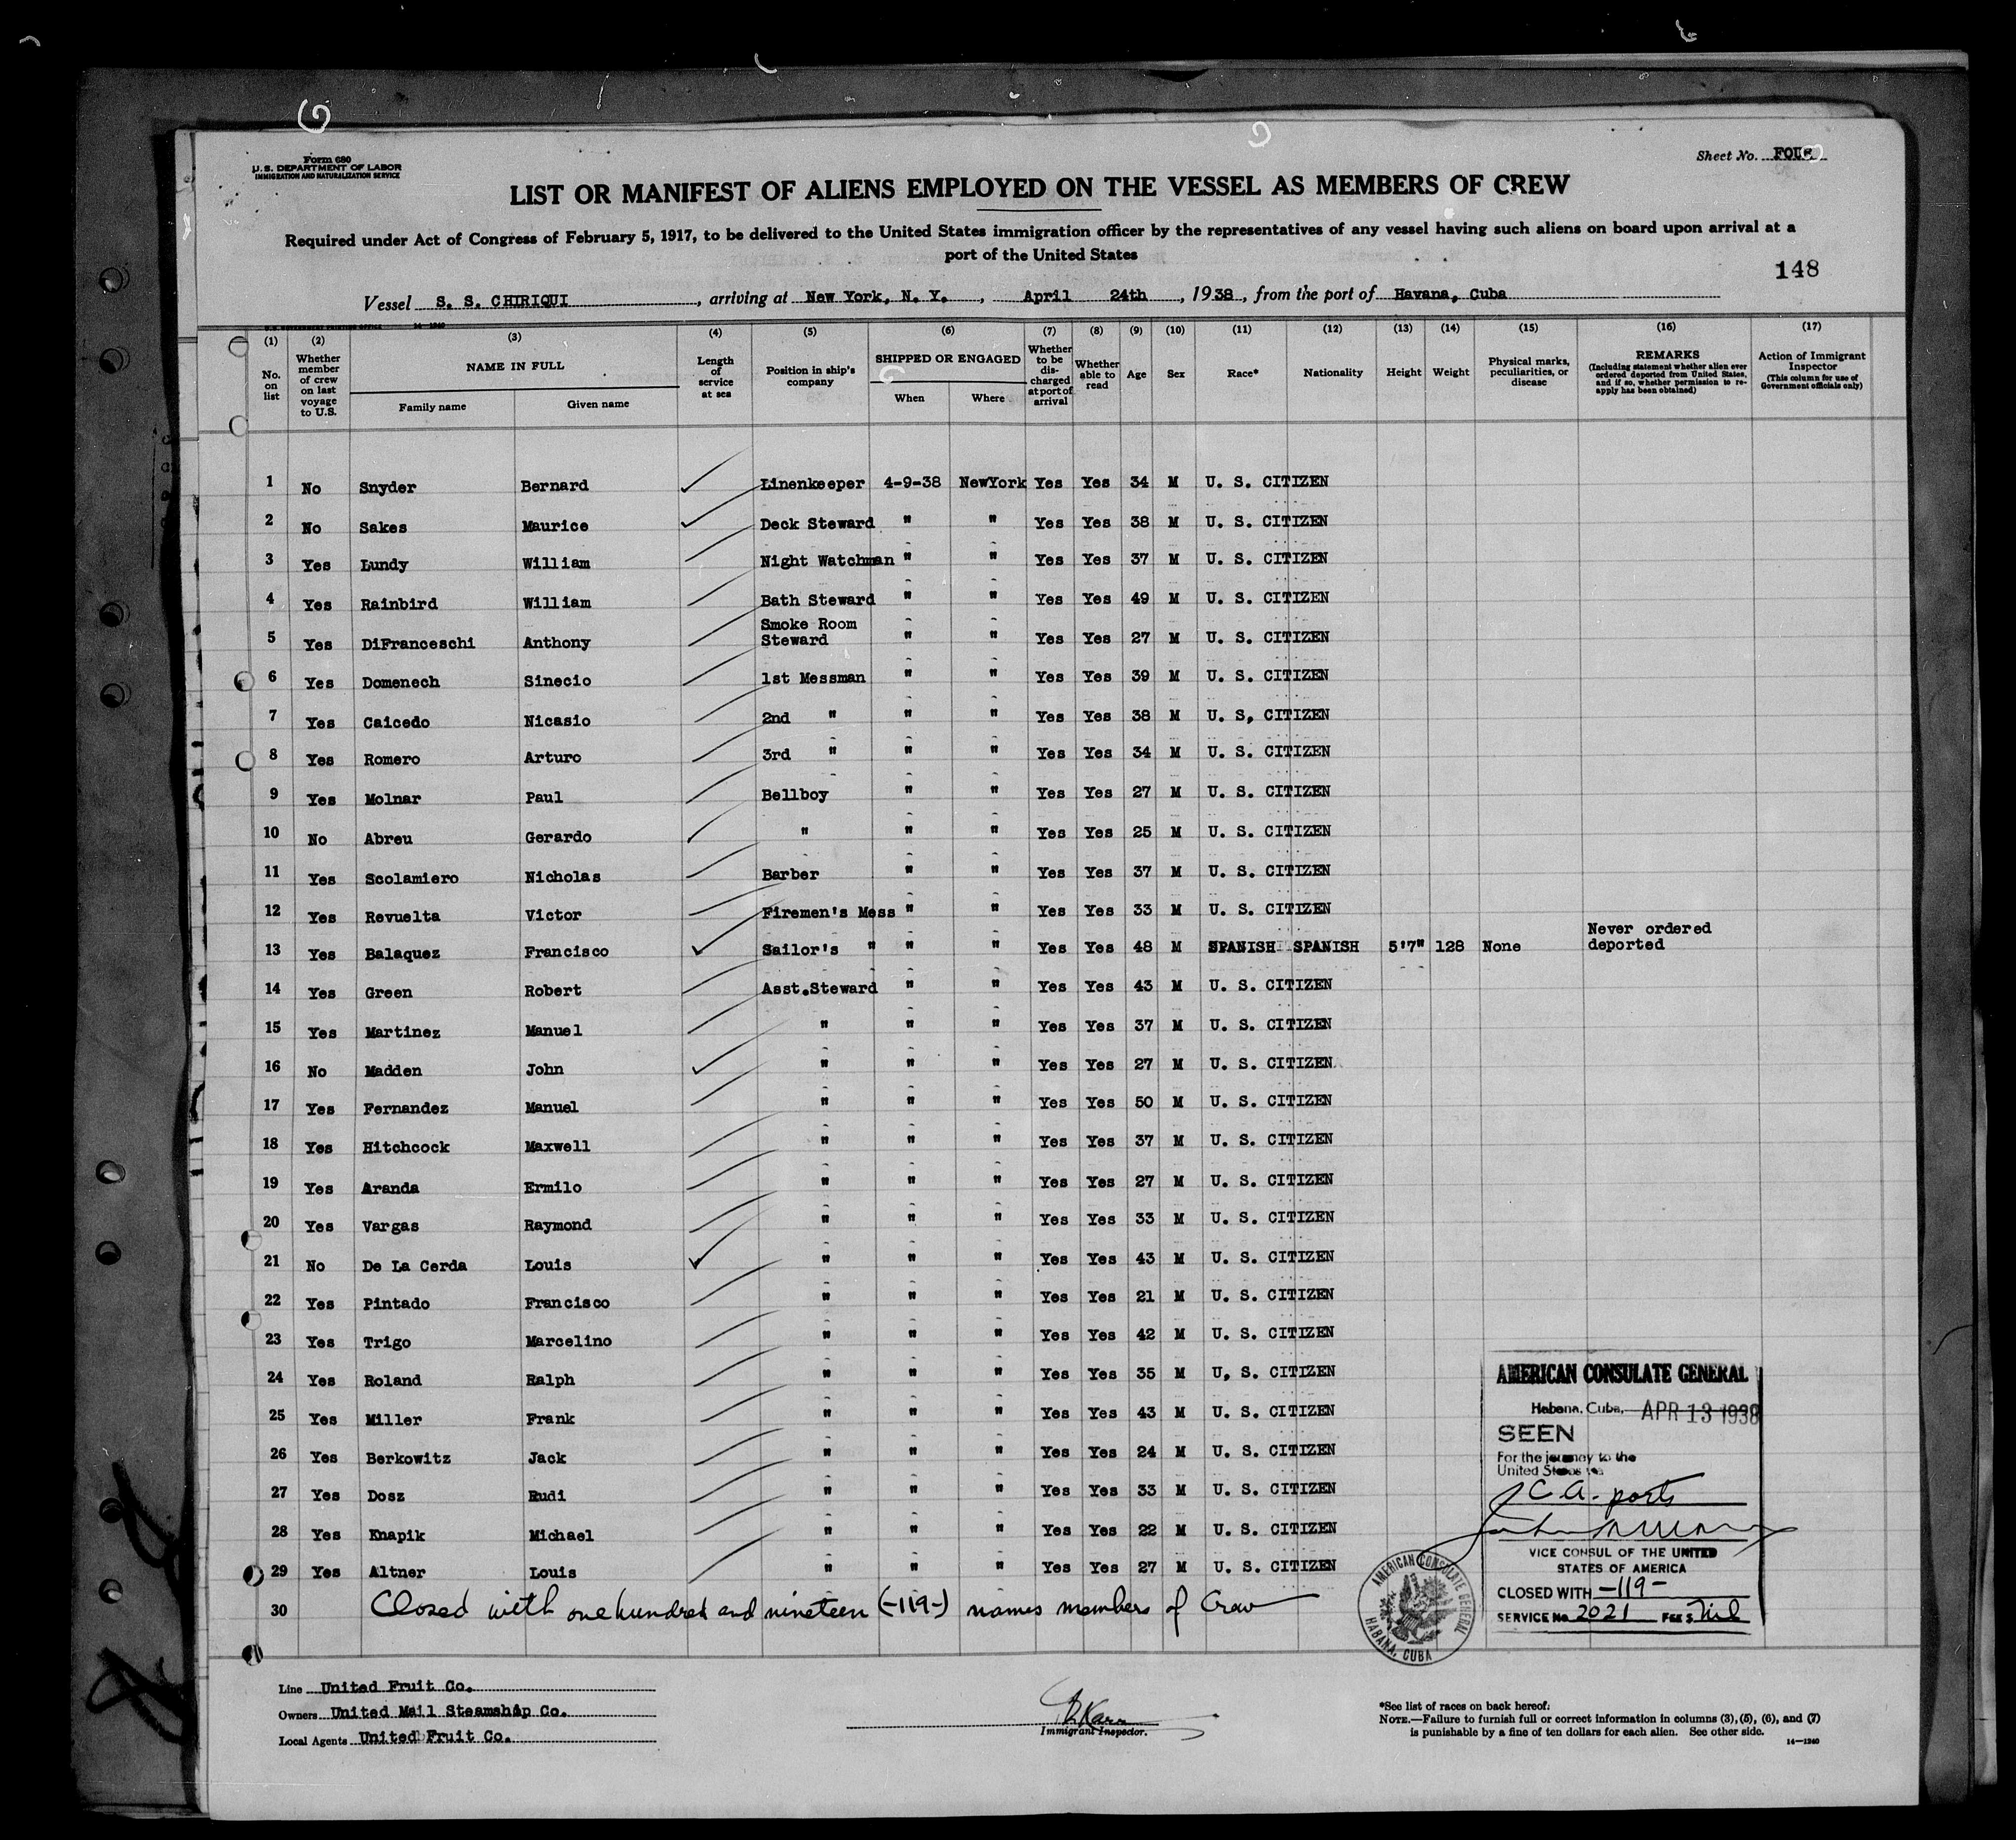 Form 680
U. S. DEPARTMENT OF LABOR
IMMIGRATION AND NATURALIZATION SERVICE
Sheet No. FOUR
LIST OR MANIFEST OF ALIENS EMPLOYED ON THE VESSEL AS MEMBERS OF CREW
Required under Act of Congress of February 5, 1917, to be delivered to the United States immigration officer by the representatives of any vessel having such aliens on board upon arrival at a
port of the United States
148
Vessel S. S. CHIRIQUI, arriving at New York, N. Y., April 24th, 1938, from the port of Havana, Cuba
U.S. GOVERNMENT PRINTING OFFICE 14—1240
(1) No. on list
(2) Whether member of crew on last voyage to U.S.
(3) NAME IN FULL
Family name Given name
(4) Length of service at sea
(5) Position in ship's company
(6) SHIPPED OR ENGAGED
When Where
(7) Whether to be discharged at port of arrival
(8) Whether able to read
(9) Age
(10) Sex
(11) Race*
(12) Nationality
(13) Height
(14) Weight
(15) Physical marks, peculiarities, or disease
(16) REMARKS (Including statement whether alien ever ordered deported from United States, and if so, whether permission to re-apply has been obtained)
(17) Action of Immigrant Inspector (This column for use of Government officials only)
1 No Snyder Bernard Linenkeeper 4-9-38 NewYork Yes Yes 34 M U. S. CITIZEN
2 No Sakes Maurice Deck Steward " " Yes Yes 38 M U. S. CITIZEN
3 Yes Lundy William Night Watchman " " Yes Yes 37 M U. S. CITIZEN
4 Yes Rainbird William Bath Steward " " Yes Yes 49 M U. S. CITIZEN
5 Yes DiFranceschi Anthony Smoke Room Steward " " Yes Yes 27 M U. S. CITIZEN
6 Yes Domenech Sinecio 1st Messman " " Yes Yes 39 M U. S. CITIZEN
7 Yes Caicedo Nicasio 2nd " " " Yes Yes 38 M U. S, CITIZEN
8 Yes Romero Arturo 3rd " " " Yes Yes 34 M U. S. CITIZEN
9 Yes Molnar Paul Bellboy " " Yes Yes 27 M U. S. CITIZEN
10 No Abreu Gerardo " " " Yes Yes 25 M U. S. CITIZEN
11 Yes Scolamiero Nicholas Barber " " Yes Yes 37 M U. S. CITIZEN
12 Yes Revuelta Victor Firemen's Mess " " Yes Yes 33 M U. S. CITIZEN
13 Yes Balaquez Francisco Sailor's " " " Yes Yes 48 M SPANISH SPANISH 5'7" 128 None Never ordered deported
14 Yes Green Robert Asst.Steward " " Yes Yes 43 M U. S. CITIZEN
15 Yes Martinez Manuel " " " Yes Yes 37 M U. S. CITIZEN
16 No Madden John " " " Yes Yes 27 M U. S. CITIZEN
17 Yes Fernandez Manuel " " " Yes Yes 50 M U. S. CITIZEN
18 Yes Hitchcock Maxwell " " " Yes Yes 37 M U. S. CITIZEN
19 Yes Aranda Ermilo " " " Yes Yes 27 M U. S. CITIZEN
20 Yes Vargas Raymond " " " Yes Yes 33 M U. S. CITIZEN
21 No De La Cerda Louis " " " Yes Yes 43 M U. S. CITIZEN
22 Yes Pintado Francisco " " " Yes Yes 21 M U. S. CITIZEN
23 Yes Trigo Marcelino " " " Yes Yes 42 M U. S. CITIZEN
24 Yes Roland Ralph " " " Yes Yes 35 M U, S. CITIZEN
25 Yes Miller Frank " " " Yes Yes 43 M U. S. CITIZEN
26 Yes Berkowitz Jack " " " Yes Yes 24 M U. S. CITIZEN
27 Yes Dosz Rudi " " " Yes Yes 33 M U. S. CITIZEN
28 Yes Knapik Michael " " " Yes Yes 22 M U. S. CITIZEN
29 Yes Altner Louis " " " Yes Yes 27 M U. S. CITIZEN
30 Closed with one hundred and nineteen (-119-) names members of Crew
AMERICAN CONSULATE GENERAL
Habana, Cuba, APR 13 1938
SEEN
For the journey to the
United States via
C.A. ports
VICE CONSUL OF THE UNITED
STATES OF AMERICA
CLOSED WITH -119-
SERVICE No. 2021 FEE $ Nil
AMERICAN CONSULATE GENERAL
HABANA, CUBA
Line United Fruit Co.
Owners United Mail Steamship Co.
Local Agents United Fruit Co.
Immigrant Inspector.
*See list of races on back hereof.
NOTE.—Failure to furnish full or correct information in columns (3), (5), (6), and (7)
is punishable by a fine of ten dollars for each alien. See other side.
14—1240